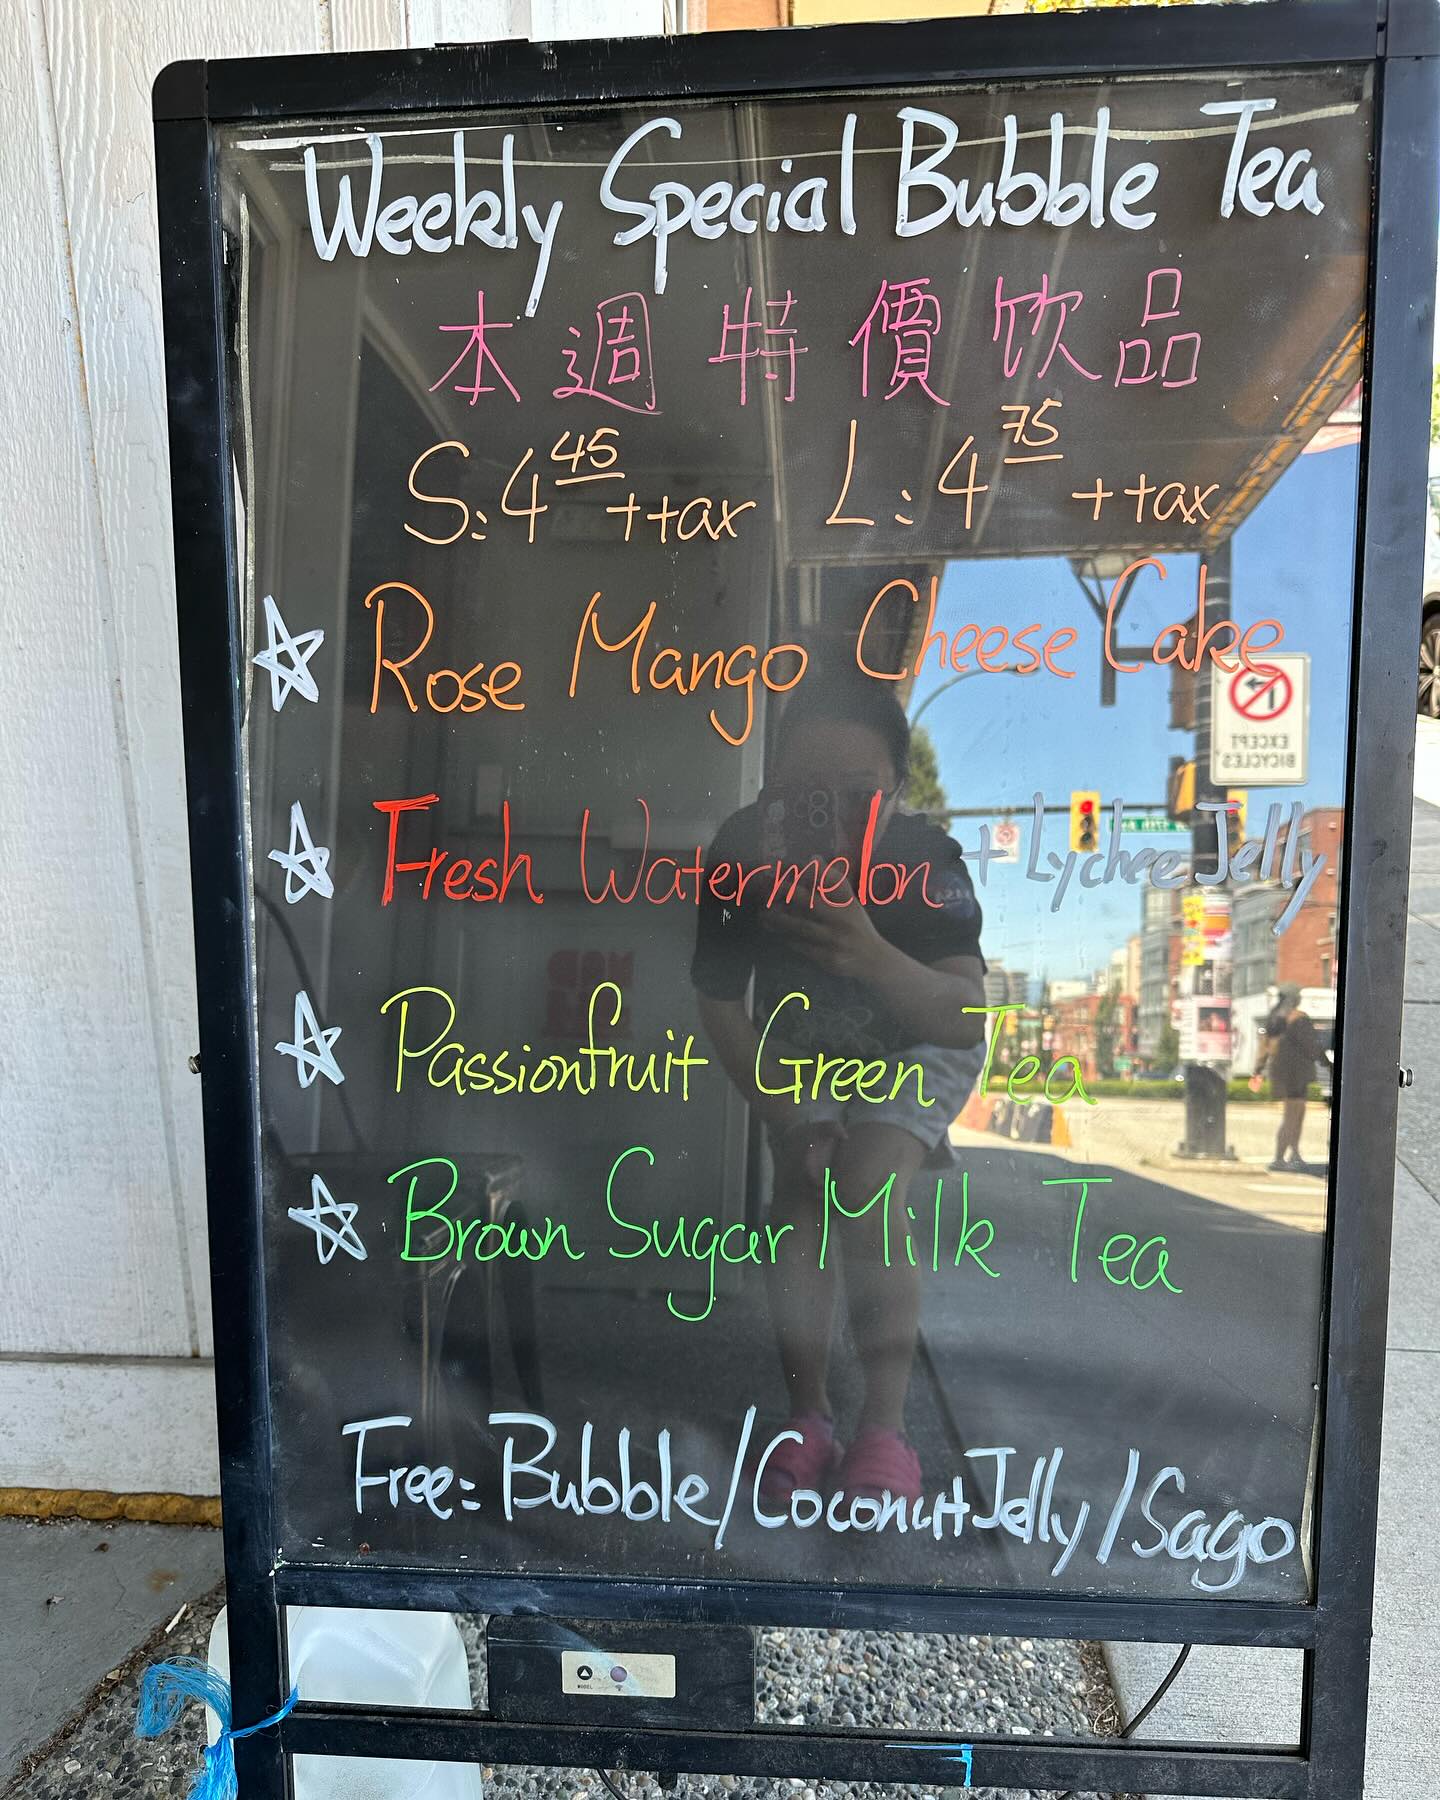 Weekly Special Bubble Tea
本週特價饮品
S: 4 45 + tax L: 4 75 + tax
☆ Rose Mango Cheese Cake
☆ Fresh Watermelon + Lychee Jelly
☆ Passionfruit Green Tea
☆ Brown Sugar Milk Tea
Free: Bubble/Coconut Jelly/Sago
EXCEPT
BICYCLES